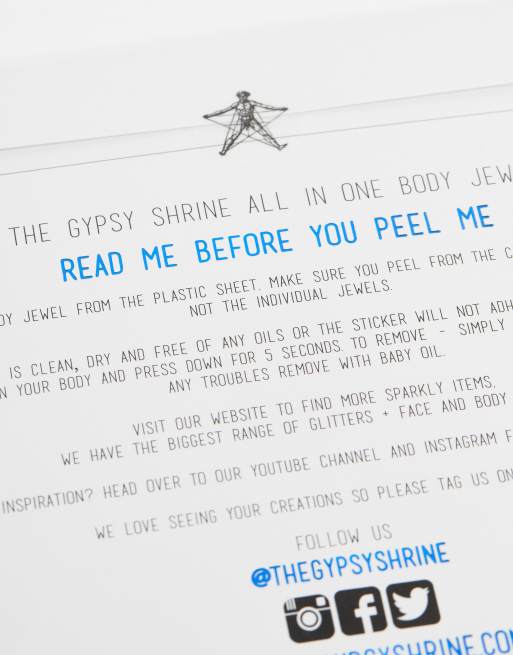 THE GYPSY SHRINE ALL IN ONE BODY
READ ME BEFORE YOU PEEL ME
JEWEL FROM THE PLASTIC SHEET. MAKE SURE YOU PEEL FROM THE
NOT THE INDIVIDUAL JEWELS.
IS CLEAN, DRY AND FREE OF ANY OILS OR THE STICKER WILL NOT
YOUR BODY AND PRESS DOWN FOR 5 SECONDS. TO REMOVE - SIMPLY
ANY TROUBLES REMOVE WITH BABY OIL.
VISIT OUR WEBSITE TO FIND MORE SPARKLY ITEMS.
WE HAVE THE BIGGEST RANGE OF GLITTERS + FACE AND BODY
INSPIRATION? HEAD OVER TO OUR YOUTUBE CHANNEL AND INSTAGRAM
WE LOVE SEEING YOUR CREATIONS SO PLEASE TAG US ON
FOLLOW US
@THEGYPSYSHRINE